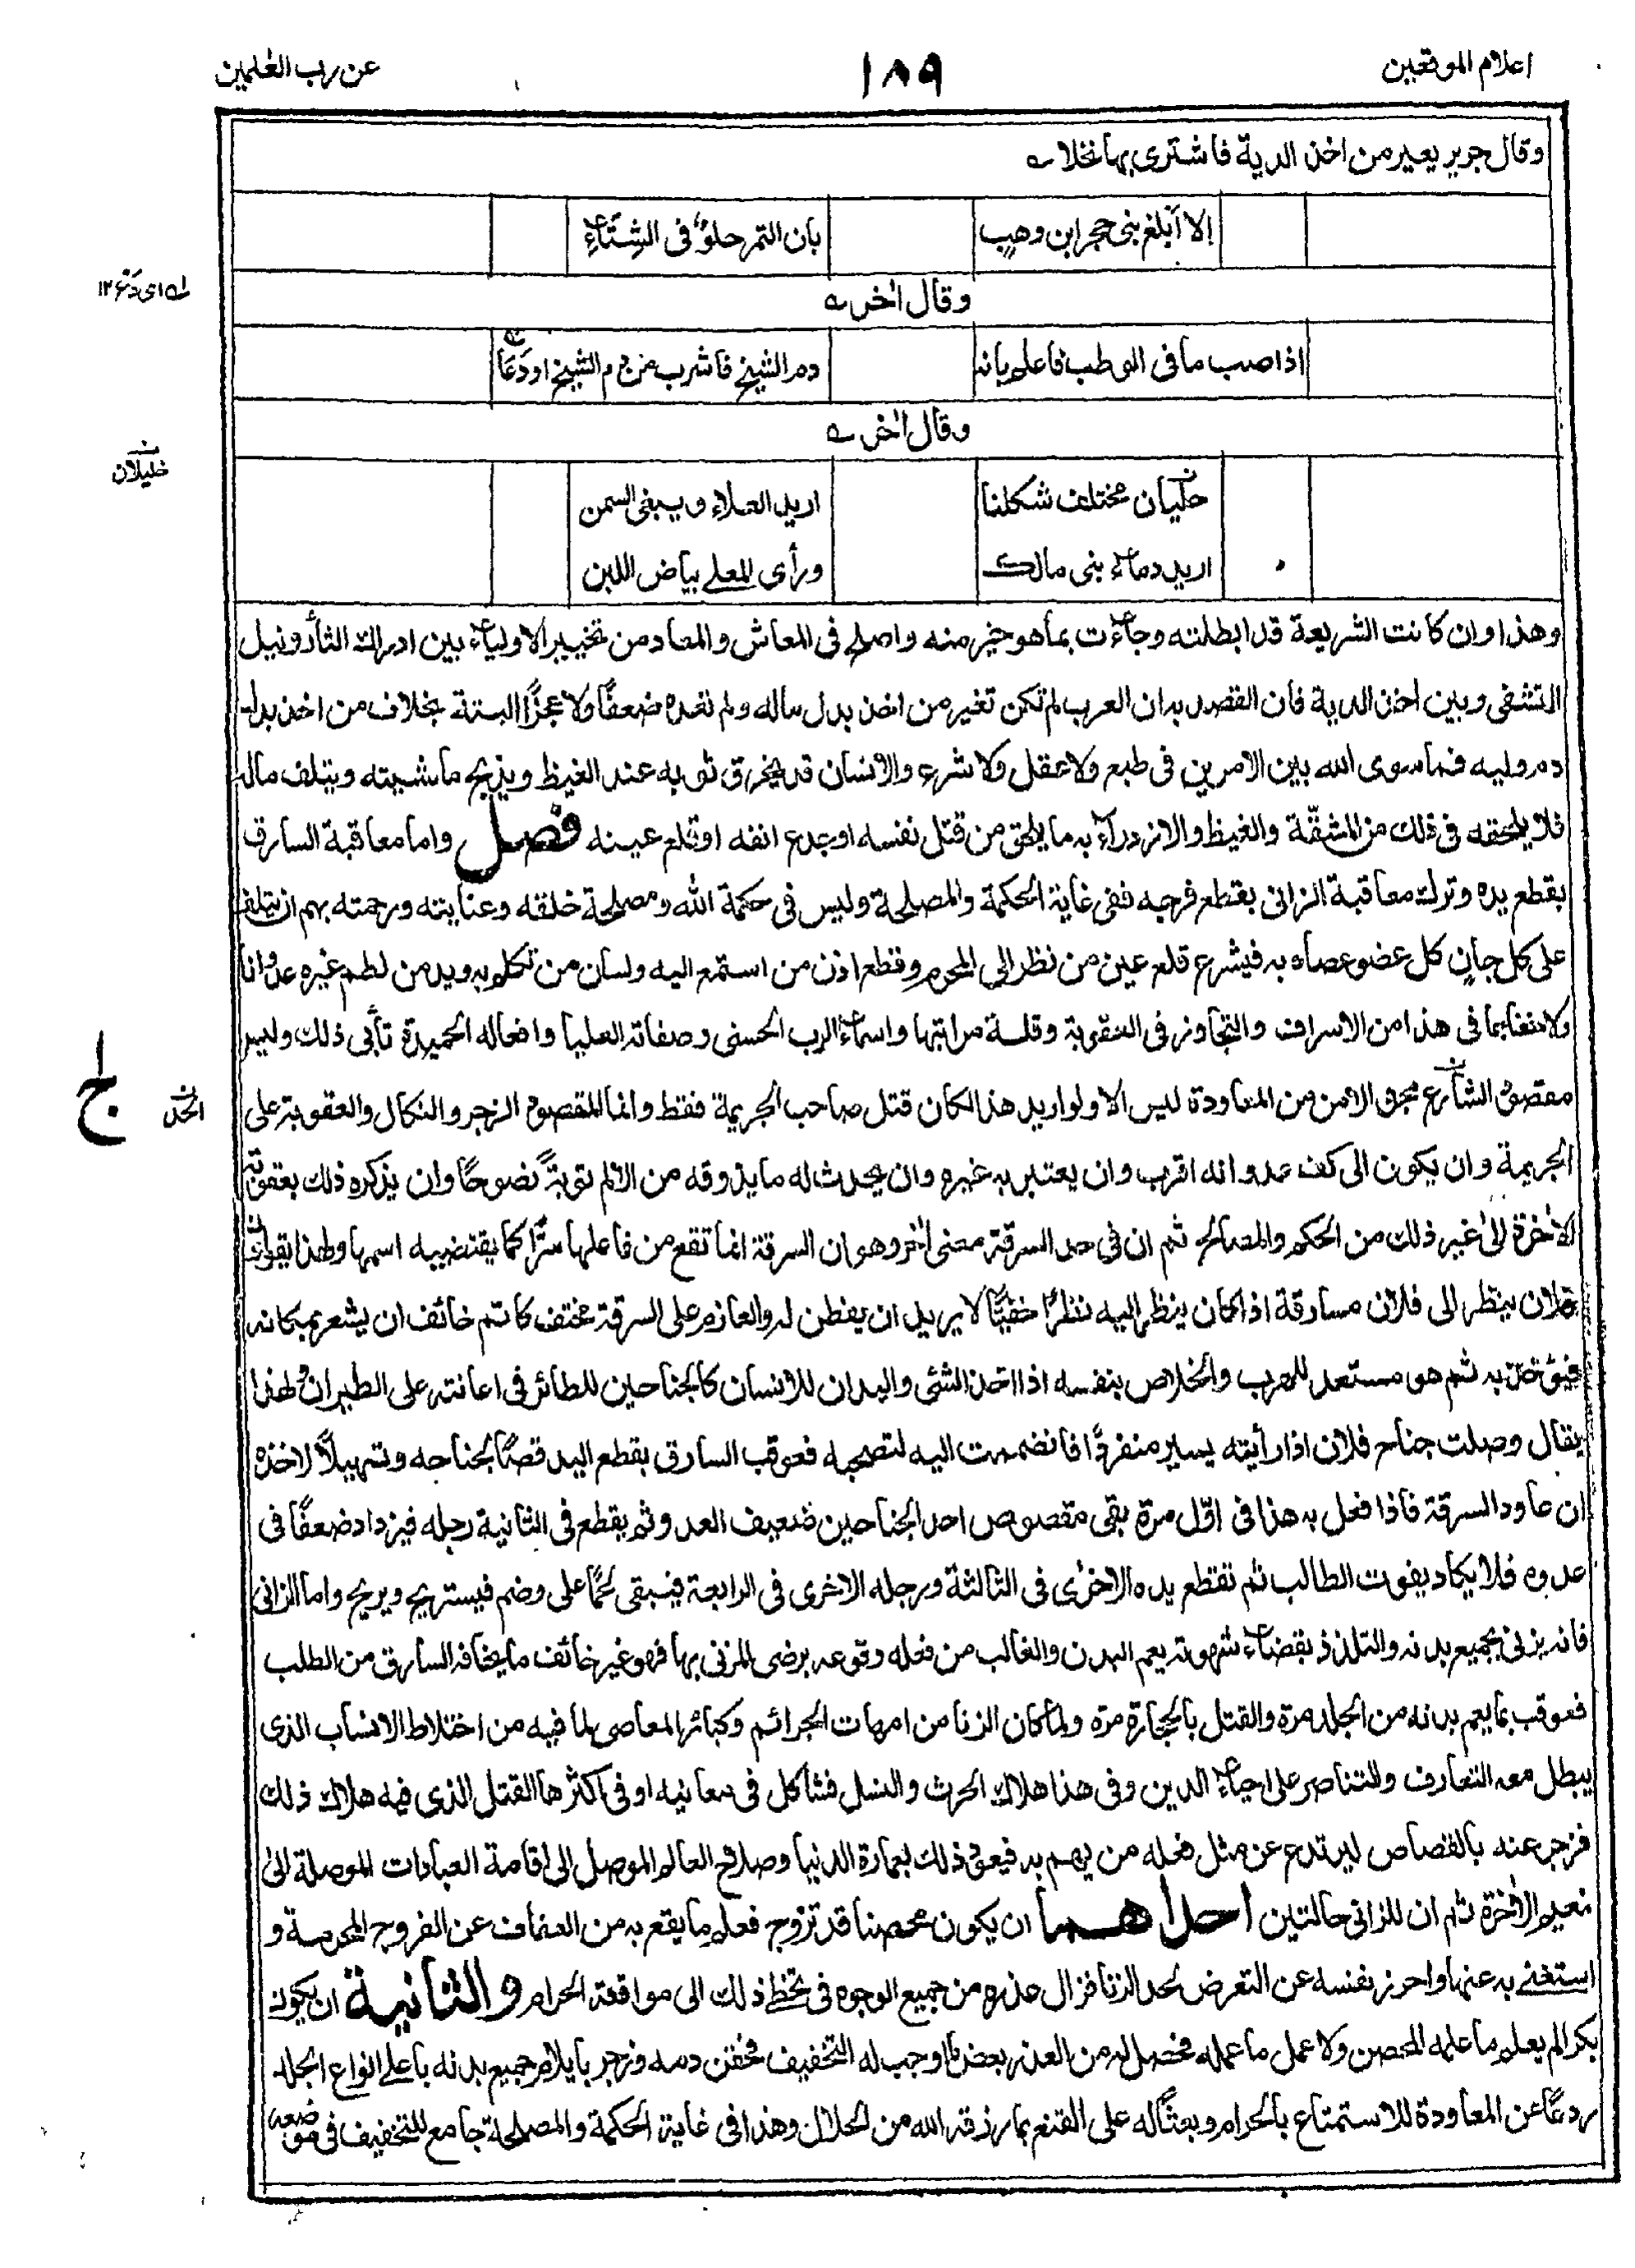 اعلام الموقعين
١٨٩
عن رب العٰلمين
وقال جرير يعير من اخذ الدية فاشترى بها نخلا ؎
الا أبلغ بنى حجر ابن وهبٍ بان التمر حلوٌ فى الشِتَاءِ
وقال اٰخر ؎
اذا صب ما فى الوطب فاعلم بانه دم الشيخ فاشرب من دم الشيخ او دَعَا
وقال اٰخر ؎
خليان مختلف شكلنا اريد العلاء ويبغى السمن
اريد دماء بنى مالك ورأى المعلے بياض اللبن
وهذا وان كانت الشريعة قد ابطلته وجاءت بما هو خير منه واصلح فى المعاش والمعاد من تخيير الاولياء بين ادراك الثأر ونيل
التشفى وبين اخذ الدية فان القصد به ان العرب لم تكن تغير من اخذ بدل ماله ولم تعده ضعفًا ولا عجزًا البتة بخلاف من اخذ بدل
دم وليه فما سوى الله بين الامرين فى طبع ولا عقل ولا شرع والانسان قد يخرق ثوبه عند الغيظ ويذبح ماشيته ويتلف ماله
فلا يلحقه فى ذلك من المشقّة والغيظ والازدراء به ما يلحق من قتل نفسه او جدع انفه او قلع عينه فصل واما معاقبة السارق
بقطع يده وترك معاقبة الزانى بقطع فرجه ففى غاية الحكمة والمصلحة وليس فى حكمة الله ومصلحة خلقه وعنايته ورحمته بهم ان يتلف
على كل جانٍ كل عضو عصاه به فيشرع قلع عين من نظر الى المحرم وقطع اذن من استمع اليه ولسان من تكلم به ويد من لطم غيره عدوانا
ولا خفاء بما فى هذا من الاسراف والتجاوز فى العقوبة وقلب مراتبها واسماء الرب الحسنى وصفاته العليا وافعاله الحميدة تأبى ذلك وليس
مقصود الشارع مجرد الامن من المعاودة ليس الا ولو اريد هذا لكان قتل صاحب الجريمة فقط وانما المقصود الزجر والنكال والعقوبة على
الجريمة وان يكون الى كف عدوانه اقرب وان يعتبر به غيره وان يحدث له ما يذوقه من الالم توبةً نصوحًا وان يذكره ذلك بعقوبة
الاٰخرة الىٰ غير ذلك من الحكم والمصالح ثم ان فى حد السرقة معنى اٰخر وهو ان السرقة انما تقع من فاعلها سرًّا كما يقتضيه اسمها ولهذا يقولون
فلان ينظر الى فلان مسارقة اذا كان ينظر اليه نظرًا خفيًّا لا يريد ان يفطن له والعازم على السرقة مختف كاتم خائف ان يشعر بمكانه
فيؤخذ به ثم هو مستعد للهرب والخلاص بنفسه اذا اخذ الشئى واليدان للانسان كالجناحين للطائر فى اعانته على الطيران ولهذا
يقال وصلت جناح فلان اذا رأيته يسير منفردًا فانضممت اليه لتصحبه فعوقب السارق بقطع اليد قصًّا لجناحه وتسهيلًا لاخذه
ان عاود السرقة فاذا فعل به هذا فى اوّل مرة بقى مقصوص احد الجناحين ضعيف العدو ثم يقطع فى الثانية رجله فيزداد ضعفًا فى
عدوه فلا يكاد يفوت الطالب ثم تقطع يده الاخرٰى فى الثالثة ورجله الاخرى فى الرابعة فيبقى لحمًا على وضم فيستريح ويريح واما الزانى
فانه يزنى بجميع بدنه والتلذذ بقضاء شهوته يعم البدن والغالب من فعله وقوعه برضى المزنى بها فهو غير خائف ما يخافه السارق من الطلب
فعوقب بما يعم بدنه من الجلد مرة والقتل بالحجارة مرة ولما كان الزنا من امهات الجرائم وكبائر المعاصى لما فيه من اختلاط الانساب الذى
يبطل معه التعارف والتناصر على احياء الدين وفى هذا هلاك الحرث والنسل فشاكل فى معانيه او فى اكثرها القتل الذى فيه هلاك ذلك
فزجر عنه بالقصاص ليرتدع عن مثل فعله من يهم به فيعود ذلك بعمارة الدنيا وصلاح العالم الموصل الى اقامة العبادات الموصلة الىٰ
نعيم الاٰخرة ثم ان للزانى حالتين احداهـما ان يكون محصنا قد تزوج فعلم ما يقع به من العفاف عن الفروج المحرمة و
استغنے به عنها واحرز نفسه عن التعرض لحد الزنا فزال عذره من جميع الوجوه فى تخطے ذلك الى مواقعة الحرام والثانية ان يكون
بكرا لم يعلم ما علمه المحصن ولا عمل ما عمله فحصل له من العذر بعض ما اوجب له التخفيف فحقن دمه وزجر بايلام جميع بدنه باعلى انواع الجلد
ردعًا عن المعاودة للاستمتاع بالحرام وبعثًا له على القنع بما رزقه الله من الحلال وهذا فى غاية الحكمة والمصلحة جامع للتخفيف فى موضعه
خليلان
الحد